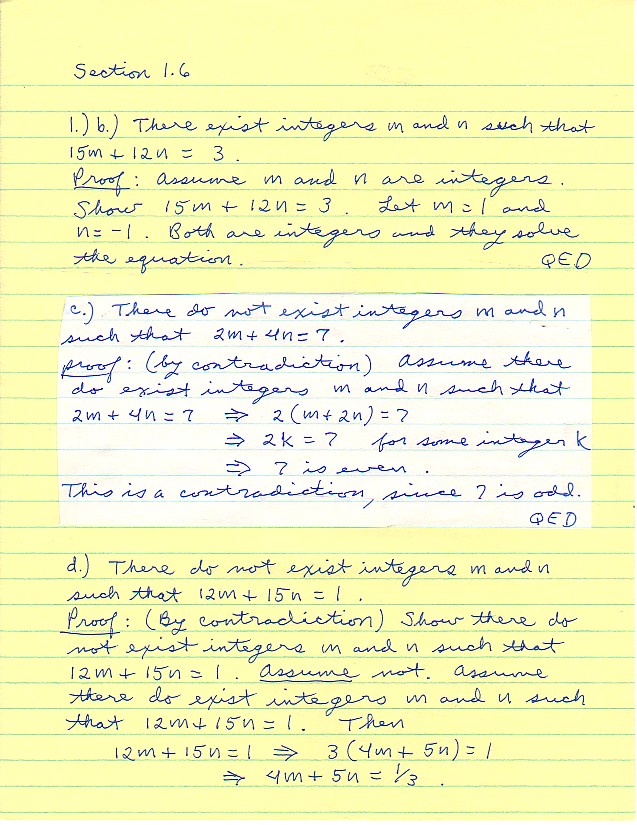 Section 1.6
1.) b.) There exist integers m and n such that
15m + 12n = 3 .
Proof : Assume m and n are integers .
Show 15m + 12n = 3 . Let m = 1 and
n = -1 . Both are integers and they solve
the equation . QED
c.) There do not exist integers m and n
such that 2m + 4n = 7 .
proof : (by contradiction) Assume there
do exist integers m and n such that
2m + 4n = 7 ⇒ 2(m + 2n) = 7
⇒ 2k = 7 for some integer k
⇒ 7 is even .
This is a contradiction, since 7 is odd.
QED
d.) There do not exist integers m and n
such that 12m + 15n = 1 .
Proof : (By contradiction) Show there do
not exist integers m and n such that
12m + 15n = 1 . Assume not. Assume
there do exist integers m and n such
that 12m + 15n = 1 . Then
12m + 15n = 1 ⇒ 3(4m + 5n) = 1
⇒ 4m + 5n = 1/3 .